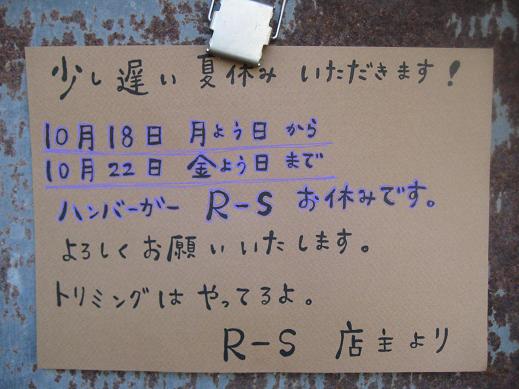 少し遅い夏休み いただきます!
10月18日 月よう日 から
10月22日 金よう日 まで
ハンバーガー R-S お休みです。
よろしくお願いいたします。
トリミングは やってるよ。
R-S 店主より